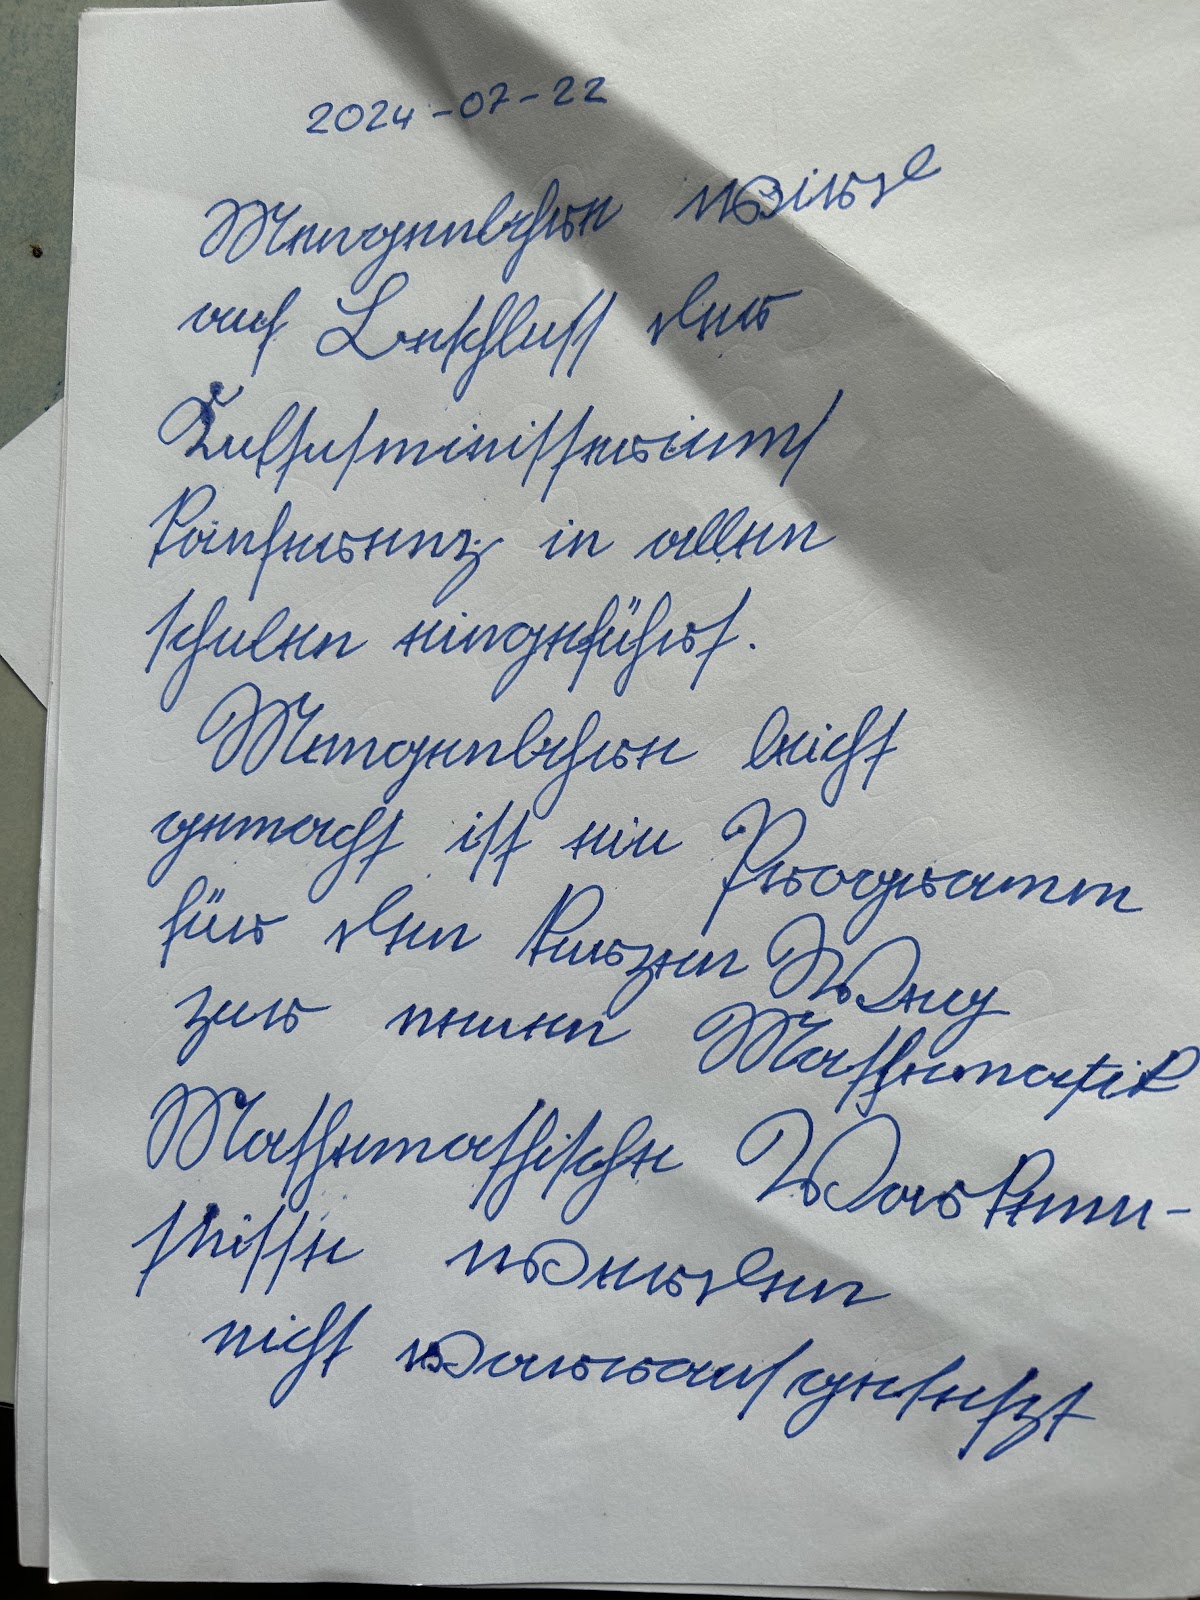 2024-07-22
Mengenlehre wird
auf Beschluss der
Kultusministerium
Konferenz in allen
schulen eingeführt.
Mengenlehre leicht
gemacht ist ein Programm
für den kurzen Weg
zur neuen Mathematik
Mathematische Vorkennt-
nisse werden
nicht vorausgesetzt